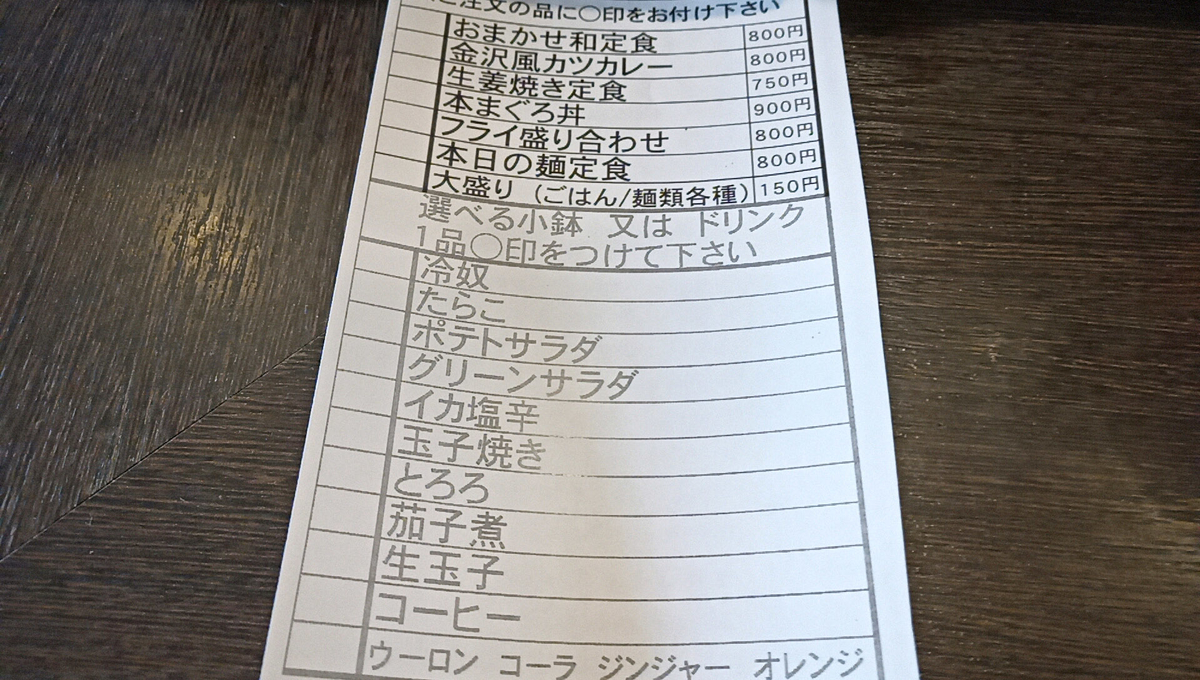 ご注文の品に○印をお付け下さい
おまかせ和定食 800円
金沢風カツカレー 800円
生姜焼き定食 750円
本まぐろ丼 900円
フライ盛り合わせ 800円
本日の麺定食 800円
大盛り（ごはん/麺類各種） 150円
選べる小鉢 又は ドリンク
1品○印をつけて下さい
冷奴
たらこ
ポテトサラダ
グリーンサラダ
イカ塩辛
玉子焼き
とろろ
茄子煮
生玉子
コーヒー
ウーロン コーラ ジンジャー オレンジ